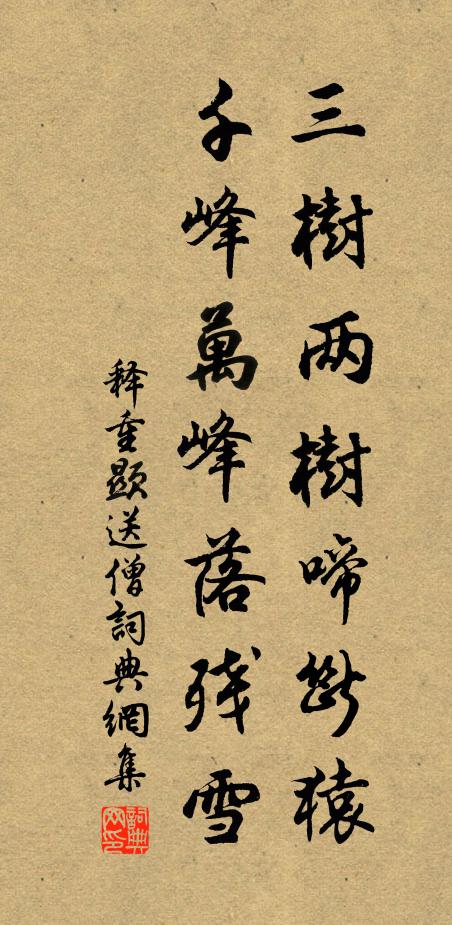 三樹两樹啼斷猿
千峰萬峰落残雪
释重顯送僧詞典網集
詞典网印